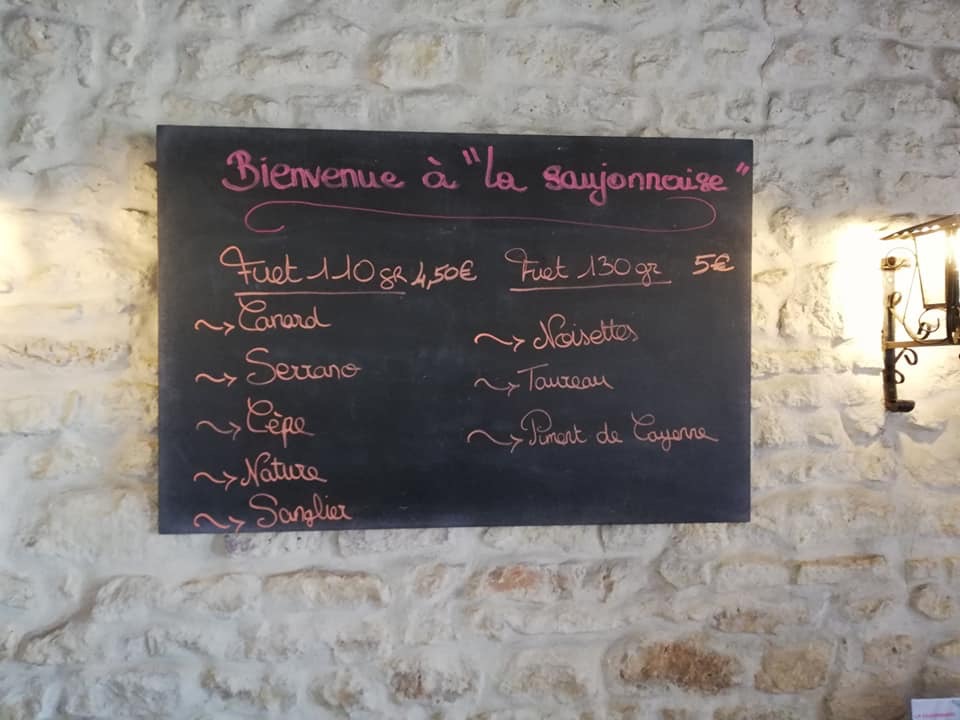 Bienvenue à "la saujonnaise"
Fuet 110gr 4,50€
Canard
Serrano
Cèpe
Nature
Sanglier
Fuet 130gr 5€
Noisettes
Taureau
Piment de Cayenne